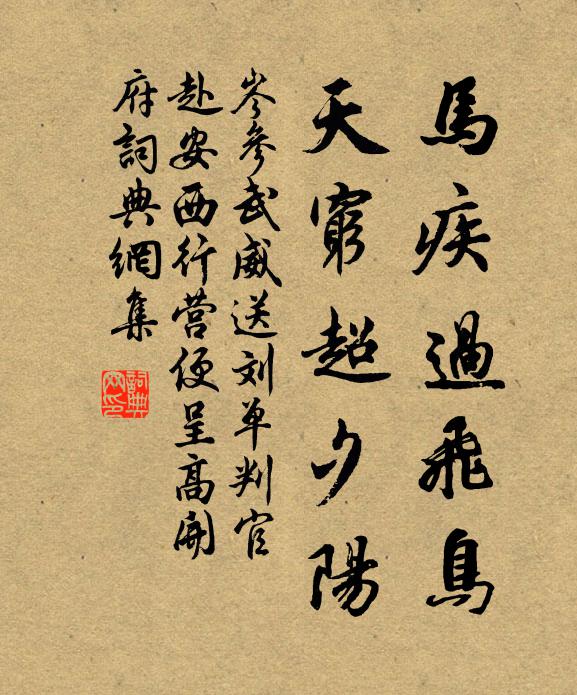 馬疾過飛鳥
天窮超夕陽
岑參武威送刘单判官
赴安西行营便呈高開
府詞典網集
詞典網印